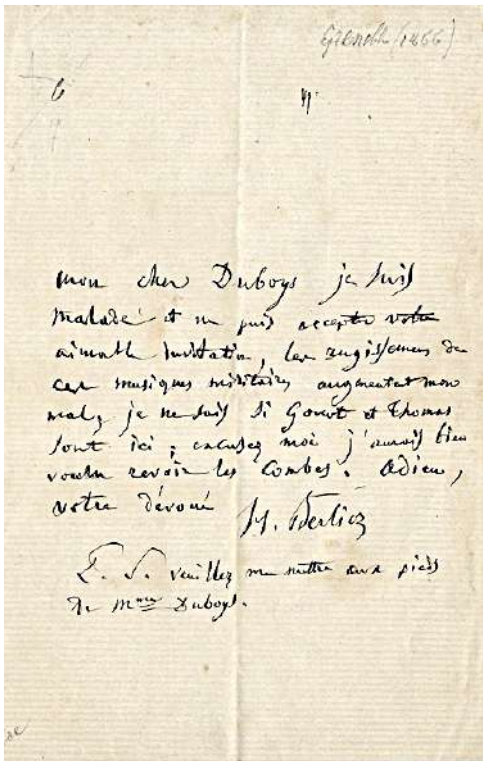 Grenoble (1866)
6
mon cher Duboys je suis
malade et ne puis accepter votre
aimable invitation, les rugissemens de
ces musiques militaires augmentent mon
mal, je ne sais si Gounot et Thomas
sont ici ; excusez moi j'aurois bien
voulu revoir les Combes. adieu,
votre dévoué
H. Berlioz
P. S. veuillez me mettre aux pieds
de Mme Duboys.